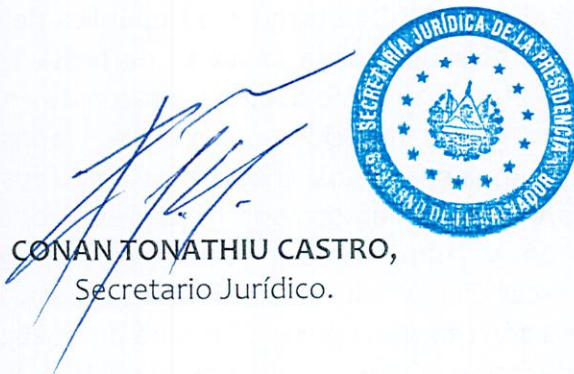 SECRETARÍA JURÍDICA DE LA PRESIDENCIA
GOBIERNO DE EL SALVADOR
CONAN TONATHIU CASTRO,
Secretario Jurídico.